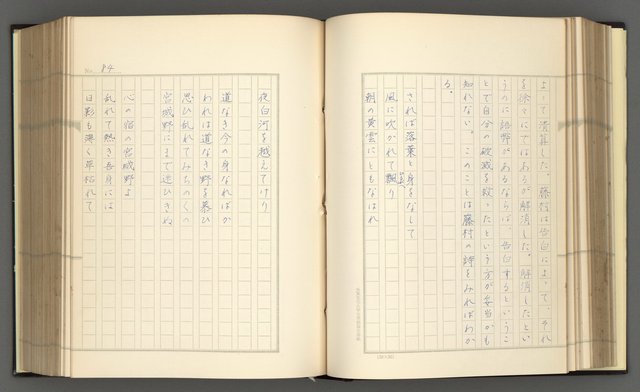 よって清算した。藤村は告白によって、それ
を徐々にではあるが解消した。解消したとい
うのに語弊があるならば、告白するというこ
とで自分の破滅を救ったという方が妥当かも
知れない。このことは藤村の詩をみればわか
る。
されば落葉と身をなして
風に吹かれて飄り
朝の黄雲にともなはれ
(20×20)
No. 84
夜白河を越えてけり
道なき今の身なればか
われは道なき野を慕ひ
思ひ乱れてみちのくの
宮城野にまで迷ひきぬ
心の宿の宮城野よ
乱れて熱き吾身には
日影も薄く草枯れて